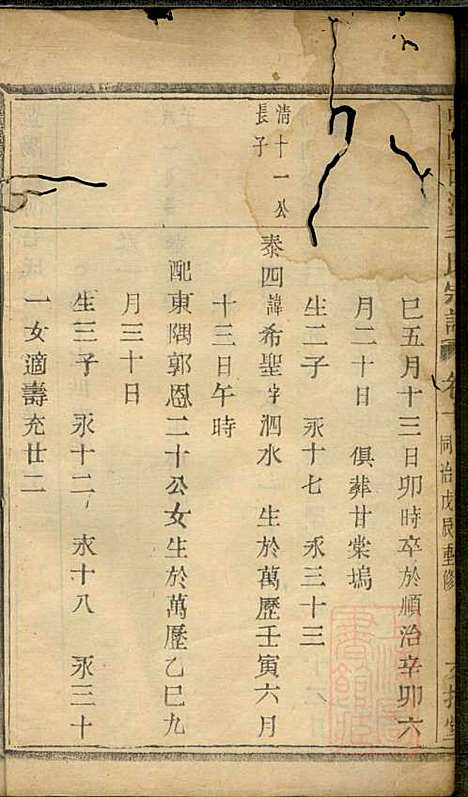 氏宗譜 卷一 同治戊辰重修
巳五月十三日卯時卒於順治辛卯六
月二十日 俱葬甘棠塢
生二子 永十七 永三十三
清十一公
長子
泰四諱希聖字泗水 生於萬歷壬寅六月
十三日午時
配東隅郭恩二十公女生於萬歷乙巳九
月三十日
生三子 永十二 永十八 永三十
一女適壽充廿二